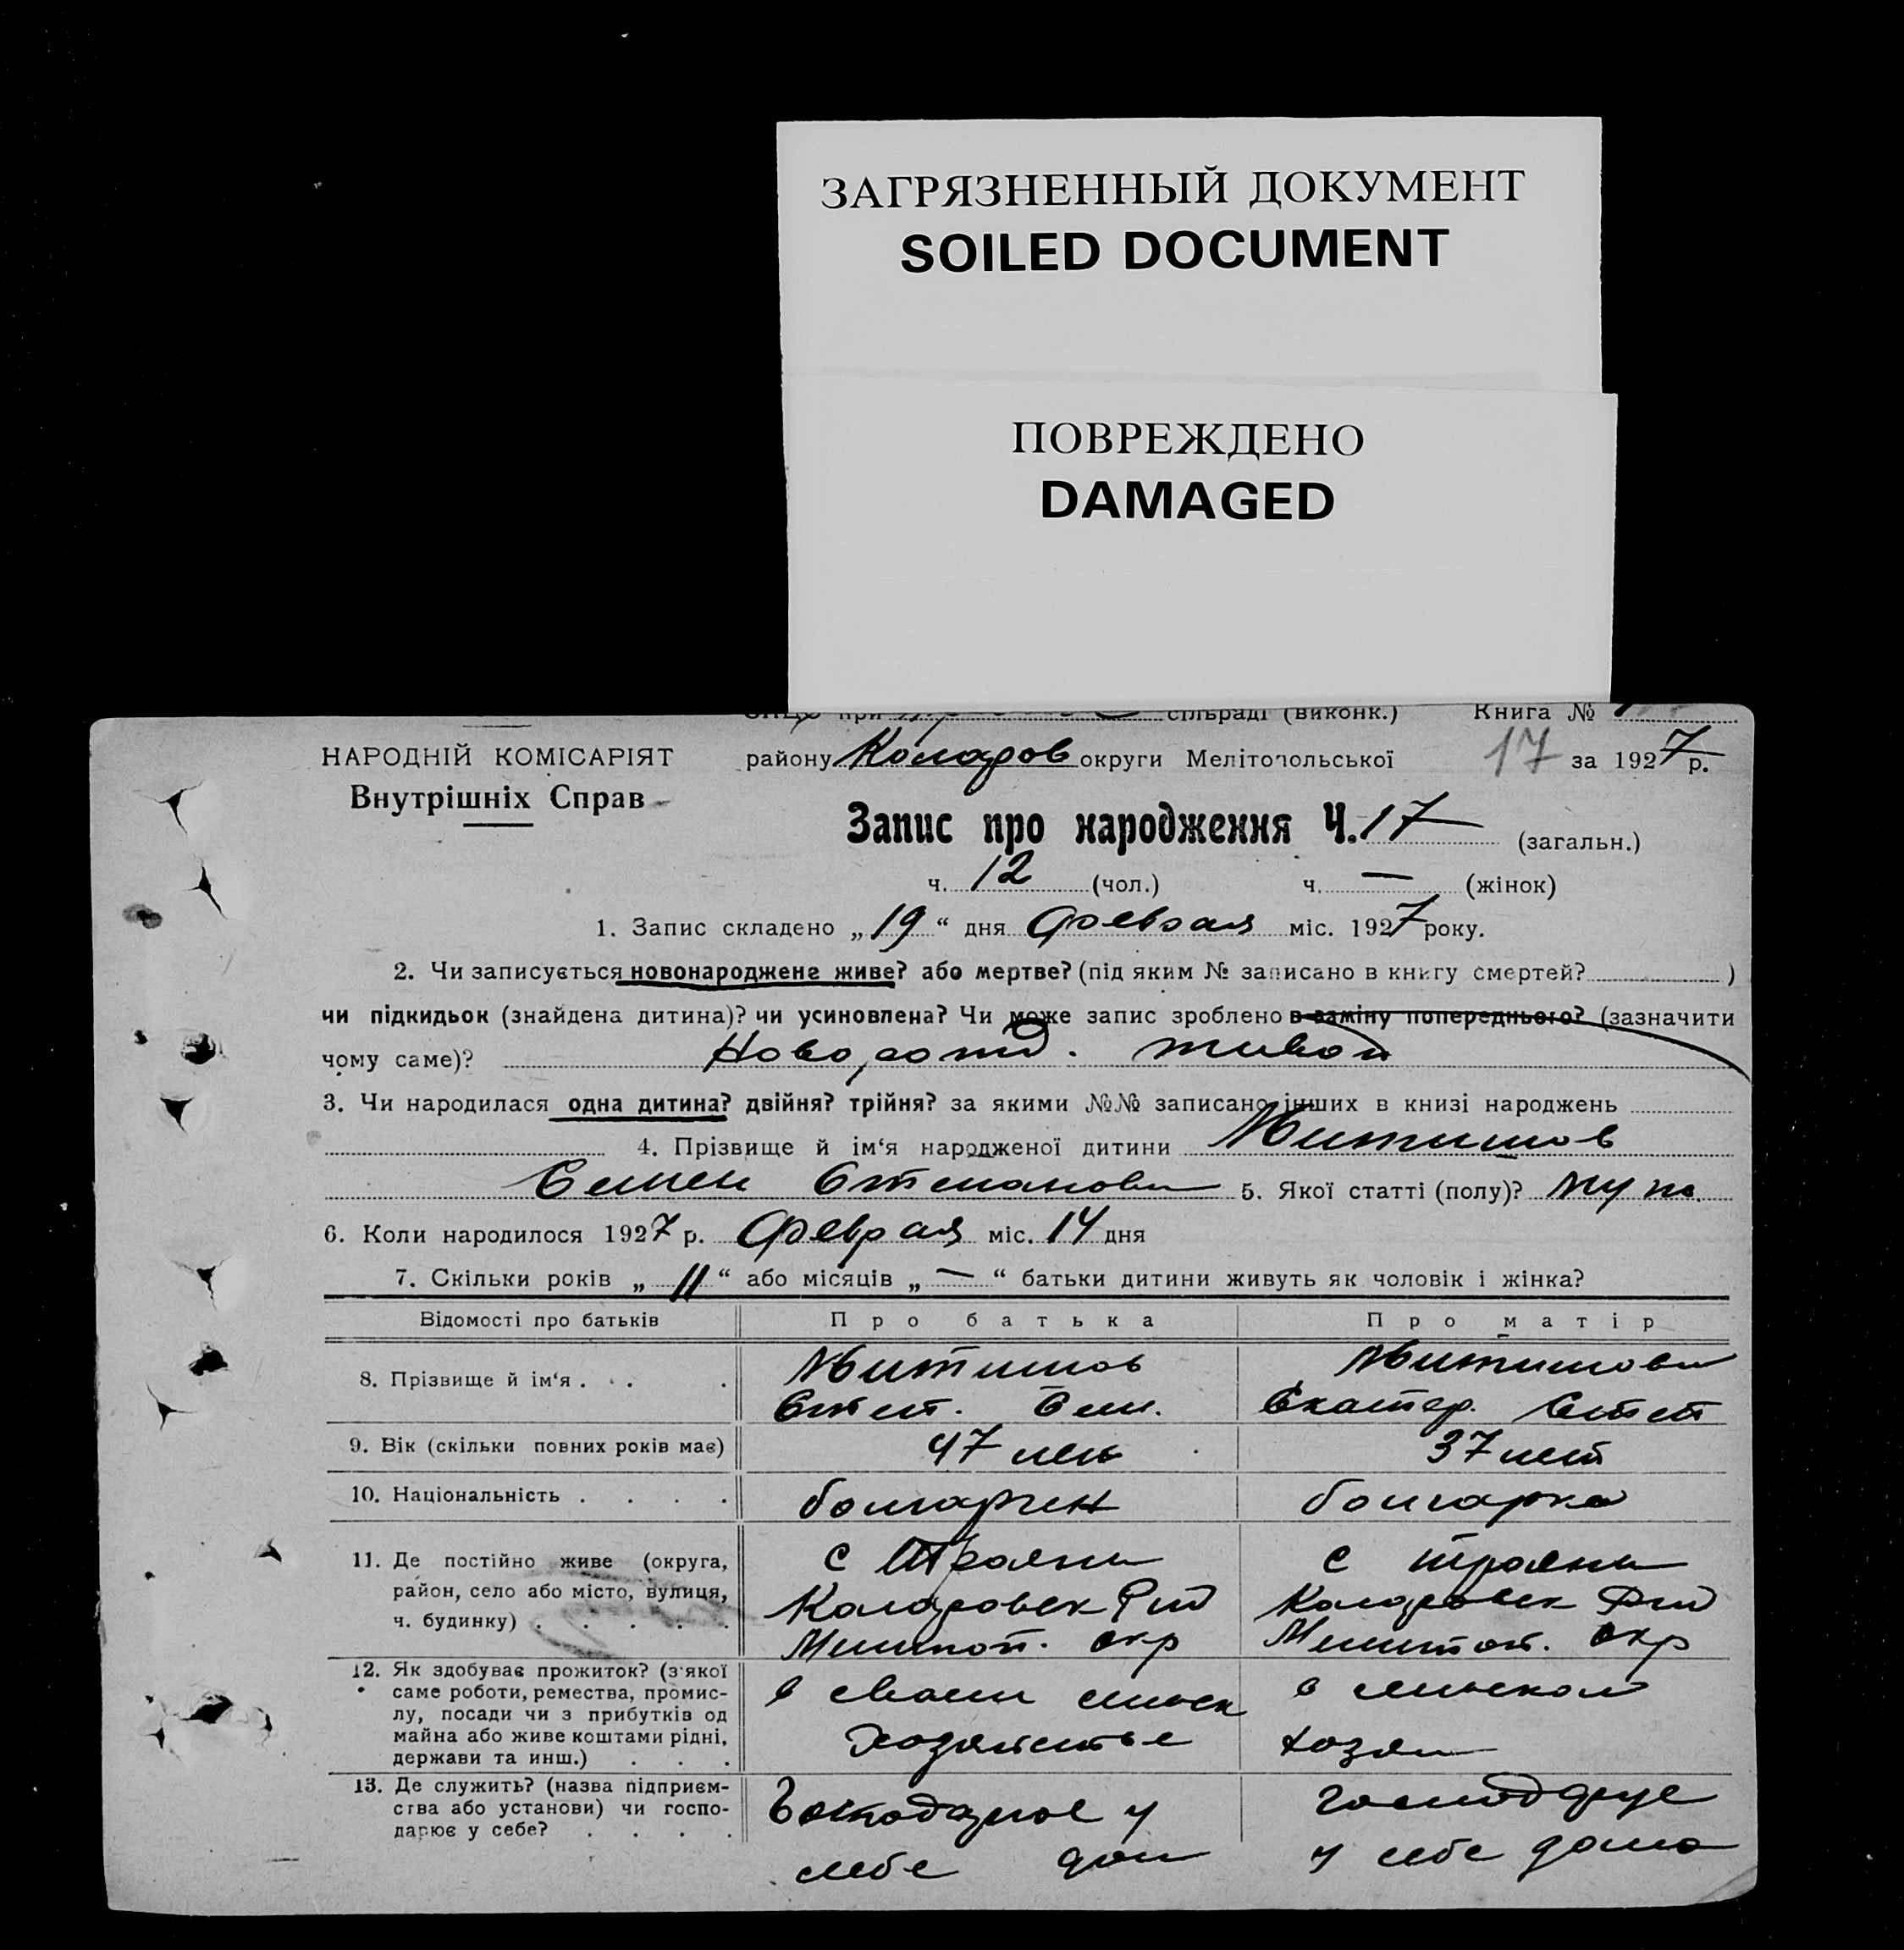 ЗАГРЯЗНЕННЫЙ ДОКУМЕНТ
SOILED DOCUMENT
ПОВРЕЖДЕНО
DAMAGED
при сільраді (виконк.) Книга №
НАРОДНІЙ КОМІСАРІЯТ
Внутрішніх Справ
району Коларов округи Мелітопольської 17 за 1927 р.
Запис про народження Ч. 17 (загальн.)
ч. 12 (чол.) ч. — (жінок)
1. Запис складено „19“ дня Февраля міс. 1927 року.
2. Чи записується новонароджене живе? або мертве? (під яким № записано в книгу смертей? )
чи підкидьок (знайдена дитина)? чи усиновлена? Чи може запис зроблено в заміну попереднього? (зазначити
чому саме)? Новорожд. живой
3. Чи народилася одна дитина? двійня? трійня? за якими №№ записано інших в книзі народжень
4. Прізвище й ім‘я народженої дитини Митишов
Семен Степанови 5. Якої статті (полу)? муж.
6. Коли народилося 1927 р. Февраля міс. 14 дня
7. Скільки років „11“ або місяців „—“ батьки дитини живуть як чоловік і жінка?
Відомості про батьків Про батька Про матір
8. Прізвище й ім‘я . . . . Митишов Митишова
Степ. Сем. Екатер. Степ
9. Вік (скільки повних років має) 47 лет 37 лет
10. Національність . . . . болгарин болгарка
11. Де постійно живе (округа, район, село або місто, вулиця, ч. будинку) . . . . .
с Трояны
Коларовск Рай
Мелитоп. окр
с трояны
Коларовск Рай
Мелитоп. окр
12. Як здобуває прожиток? (з‘якої
саме роботи, ремества, промис-
лу, посади чи з прибутків од
майна або живе коштами рідні,
держави та инш.) . . .
в своем сельск
хозяйстве
в сельском
хозяй
13. Де служить? (назва підприєм-
ства або установи) чи госпо-
дарює у себе? . . . .
Господарює у
себе дом
господарує
у себе дома